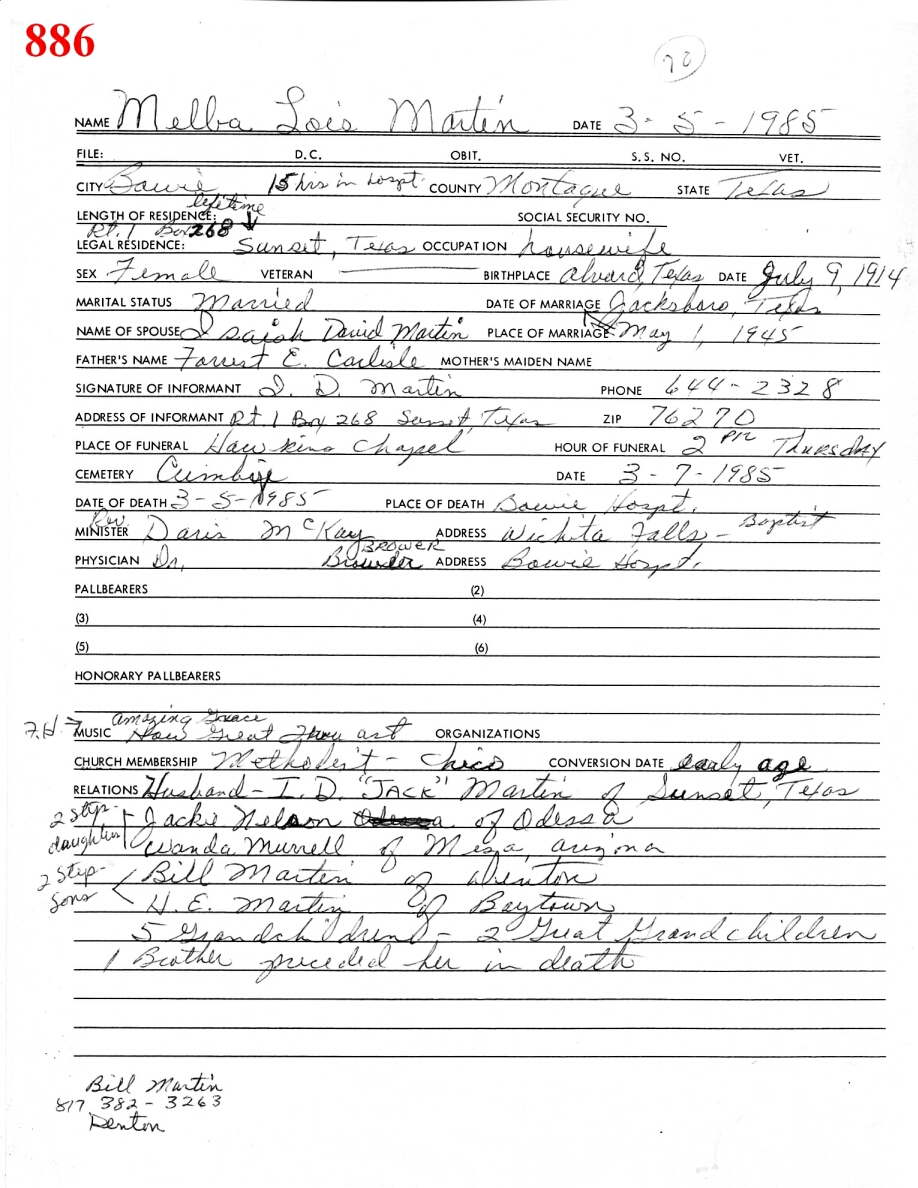 886
70
NAME Melba Lois Martin DATE 3-5-1985
FILE: D.C. OBIT. S.S. NO. VET.
CITY Bowie 15 hrs in hospt. COUNTY Montague STATE Texas
lifetime
LENGTH OF RESIDENCE: SOCIAL SECURITY NO.
Rt. 1 Box 268
LEGAL RESIDENCE: Sunset, Texas OCCUPATION housewife
SEX Female VETERAN BIRTHPLACE Alvord, Texas DATE July 9, 1914
MARITAL STATUS Married DATE OF MARRIAGE Jacksboro, Texas
NAME OF SPOUSE Isaiah David Martin PLACE OF MARRIAGE May 1, 1945
FATHER'S NAME Forrest E. Carlisle MOTHER'S MAIDEN NAME
SIGNATURE OF INFORMANT I. D. Martin PHONE 644-2328
ADDRESS OF INFORMANT Rt 1 Box 268 Sunset, Texas ZIP 76270
PLACE OF FUNERAL Hawkins Chapel HOUR OF FUNERAL 2 PM Thursday
CEMETERY DATE 3-7-1985
DATE OF DEATH 3-5-1985 PLACE OF DEATH Bowie Hospt.
Rev.
MINISTER McKay ADDRESS Wichita Falls - Baptist
BROWER
PHYSICIAN Dr. ADDRESS Bowie Hospt.
PALLBEARERS (2)
(3) (4)
(5) (6)
HONORARY PALLBEARERS
Amazing Grace
F.H. MUSIC How Great Thou art ORGANIZATIONS
CHURCH MEMBERSHIP Methodist - Chico CONVERSION DATE early age
RELATIONS Husband - I. D. "JACK" Martin of Sunset, Texas
2 Step- daughters Jackie Nelson of Odessa
Wanda Murrell of Mesa, arizona
2 Step- Sons Bill Martin of Denton
H. E. Martin of Baytown
5 Grandchildren - 2 Great Grandchildren
1 Brother preceded her in death
Bill Martin
817 382-3263
Denton